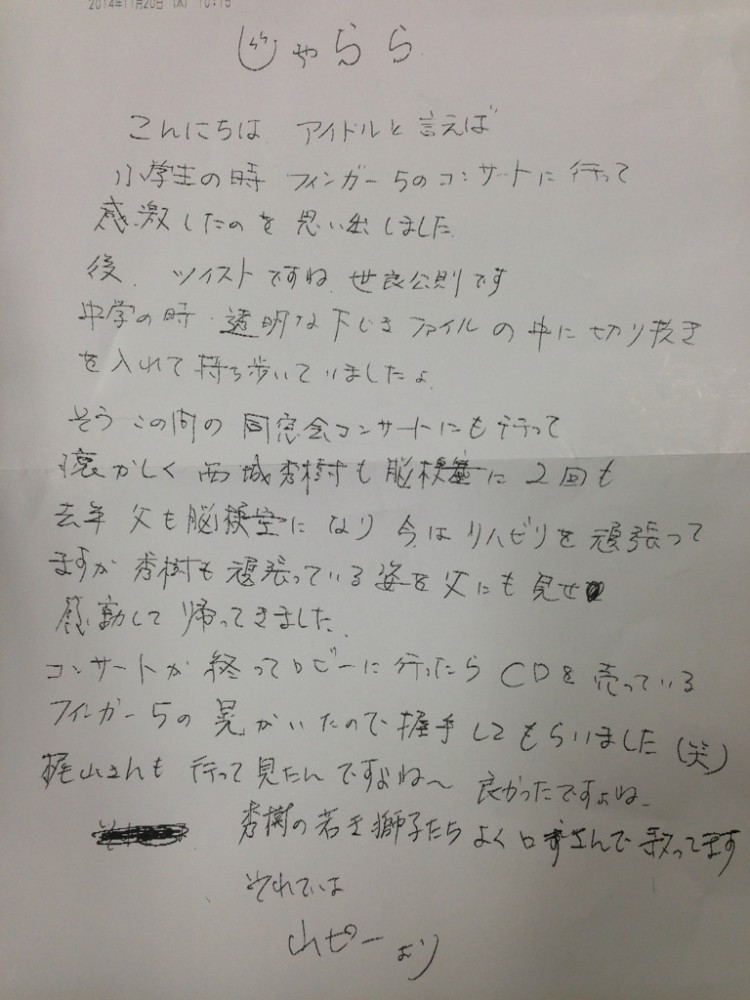 2014年11月20日 (木) 10:15
じゃらら
こんにちは アイドルと言えば
小学生の時 フィンガー5のコンサートに行って
感激したのを思い出しました
後、ツイストですね 世良公則です
中学の時・透明な下じきファイルの中に切り抜き
を入れて持ち歩いていましたよ
そうこの間の同窓会コンサートにも行って
懐かしく西城秀樹も脳梗塞に2回も
去年父も脳梗塞になり今はリハビリを頑張って
ますが秀樹も頑張っている姿を父にも見せ
感動して帰ってきました
コンサートが終ってロビーに行ったらCDを売っている
フィンガー5の晃がいたので握手してもらいました(笑)
梶山さんも行って見たんですよね〜 良かったですよね
秀樹の若き獅子たちよく口ずさんで歌ってます
それでは
山ピーより